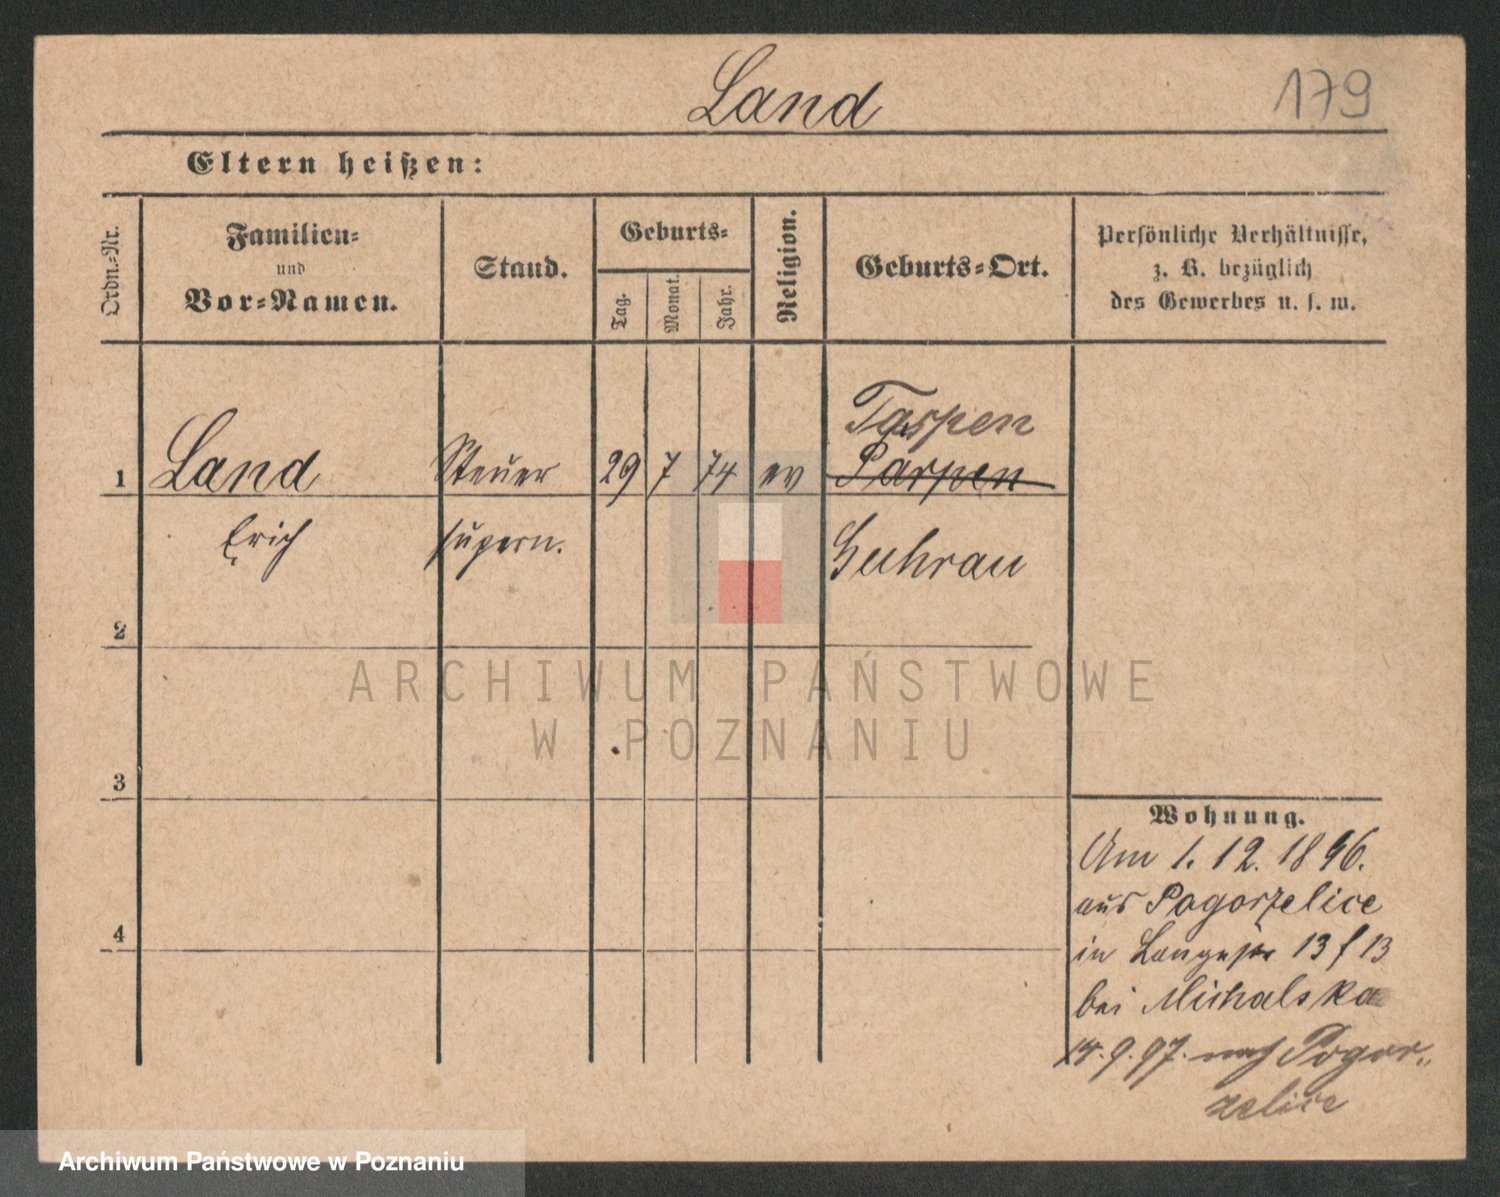 Land
179
Eltern heißen:
Ordn.-Nr.
Familien-
und
Vor-Namen.
Stand.
Geburts-
Tag.
Monat.
Jahr.
Religion.
Geburts-Ort.
Persönliche Verhältnisse,
z. B. bezüglich
des Gewerbes u. s. w.
Taspen
1 Land Steuer 29 7 74 ev Parpen
Erich supern. Guhrau
2
3
4
Wohnung.
Am 1. 12. 1896.
aus Pogorzelice
in Langestr 13 f 13
bei Michalska
14. 9. 97. nach Pogor-
zelice
ARCHIWUM PAŃSTWOWE
W POZNANIU
Archiwum Państwowe w Poznaniu